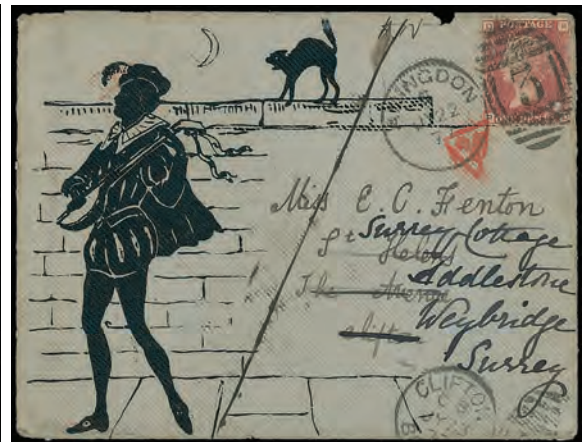 A/V
POSTAGE
ONE PENNY
Miss E. C. Fenton
Surrey Cottage
St Helens
Addlestone
The Avenue
Weybridge
Clifton
Surrey
CLIFTON